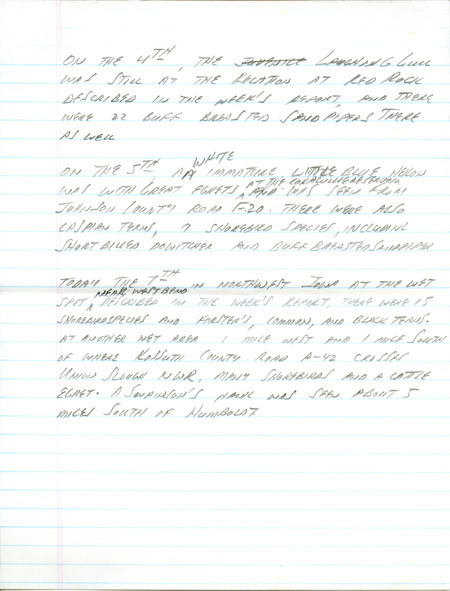 ON THE 4TH, THE LAUGHING GULL
WAS STILL AT THE LOCATION AT RED ROCK
DESCRIBED IN THE WEEK'S REPORT, AND THERE
WERE 22 BUFF BREASTED SANDPIPERS THERE
AS WELL
ON THE 5TH, AN WHITE IMMATURE LITTLE BLUE HERON
WAS WITH GREAT EGRETS AT THE CORALVILLE RESERVOIR AND WAS SEEN FROM
JOHNSON COUNTY ROAD F-20. THERE WERE ALSO
CASPIAN TERNS, 7 SHOREBIRD SPECIES, INCLUDING
SHORT BILLED DOWITCHER AND BUFF BREASTED SANDPIPER
TODAY THE 7TH IN NORTHWEST IOWA AT THE WET
SPOT NEAR WEST BEND DESCRIBED IN THE WEEK'S REPORT, THERE WERE 15
SHOREBIRD SPECIES AND FORSTER'S, COMMON, AND BLACK TERNS.
AT ANOTHER WET AREA 1 MILE WEST AND 1 MILE SOUTH
OF WHERE KOSSUTH COUNTY ROAD A-42 CROSSES
UNION SLOUGH NWR, MANY SHOREBIRDS AND A CATTLE
EGRET. A SWAINSON'S HAWK WAS SEEN ABOUT 5
MILES SOUTH OF HUMBOLDT